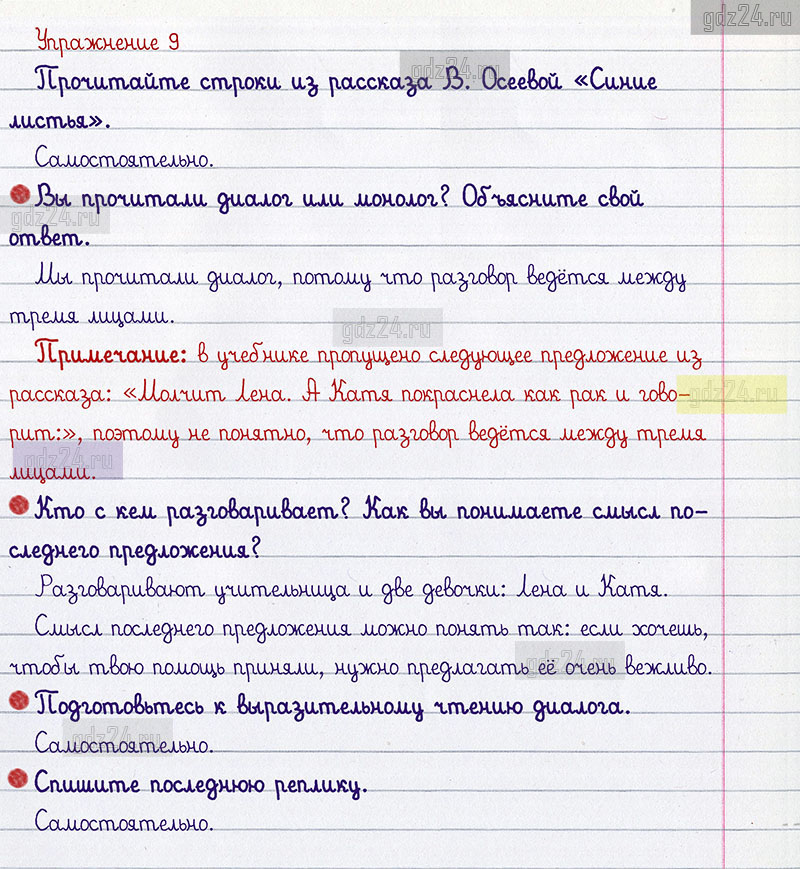 gdz24.ru
Упражнение 9
Прочитайте строки из рассказа В. Осеевой «Синие
gdz24.ru
листья».
Самостоятельно.
Вы прочитали диалог или монолог? Объясните свой
gdz24.ru
ответ.
Мы прочитали диалог, потому что разговор ведётся между
тремя лицами.
gdz24.ru
Примечание: в учебнике пропущено следующее предложение из
рассказа: «Молчит Лена. А Катя покраснела как рак и гово-
gdz24.ru
рит:», поэтому не понятно, что разговор ведётся между тремя
gdz24.ru
лицами.
Кто с кем разговаривает? Как вы понимаете смысл по-
следнего предложения?
Разговаривают учительница и две девочки: Лена и Катя.
Смысл последнего предложения можно понять так: если хочешь,
чтобы твою помощь приняли, нужно предлагать её очень вежливо.
gdz24.ru
Подготовьтесь к выразительному чтению диалога.
gdz24.ru
Самостоятельно.
Спишите последнюю реплику.
Самостоятельно.